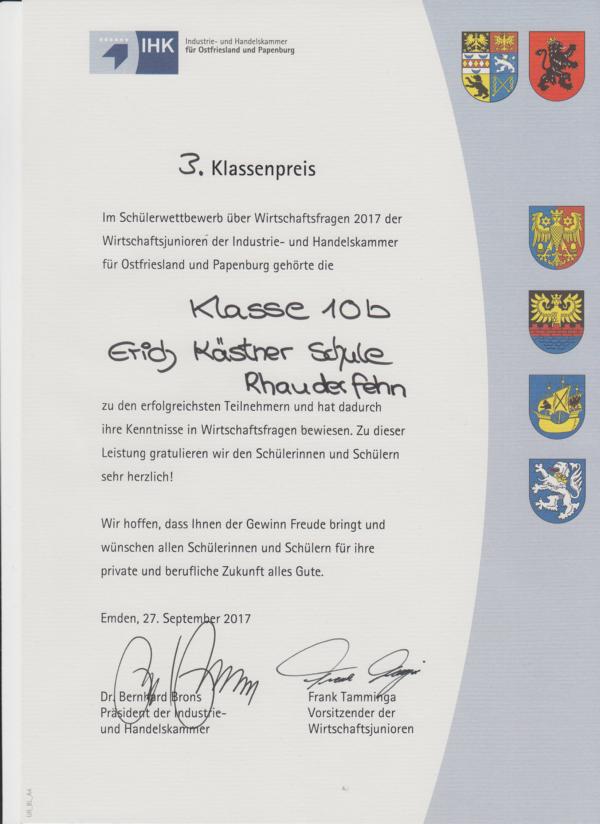 IHK
Industrie- und Handelskammer
für Ostfriesland und Papenburg
3. Klassenpreis
Im Schülerwettbewerb über Wirtschaftsfragen 2017 der
Wirtschaftsjunioren der Industrie- und Handelskammer
für Ostfriesland und Papenburg gehörte die
Klasse 10b
Erich Kästner Schule
Rhauderfehn
zu den erfolgreichsten Teilnehmern und hat dadurch
ihre Kenntnisse in Wirtschaftsfragen bewiesen. Zu dieser
Leistung gratulieren wir den Schülerinnen und Schülern
sehr herzlich!
Wir hoffen, dass Ihnen der Gewinn Freude bringt und
wünschen allen Schülerinnen und Schülern für ihre
private und berufliche Zukunft alles Gute.
Emden, 27. September 2017
Dr. Bernhard Brons
Präsident der Industrie-
und Handelskammer
Frank Tamminga
Vorsitzender der
Wirtschaftsjunioren